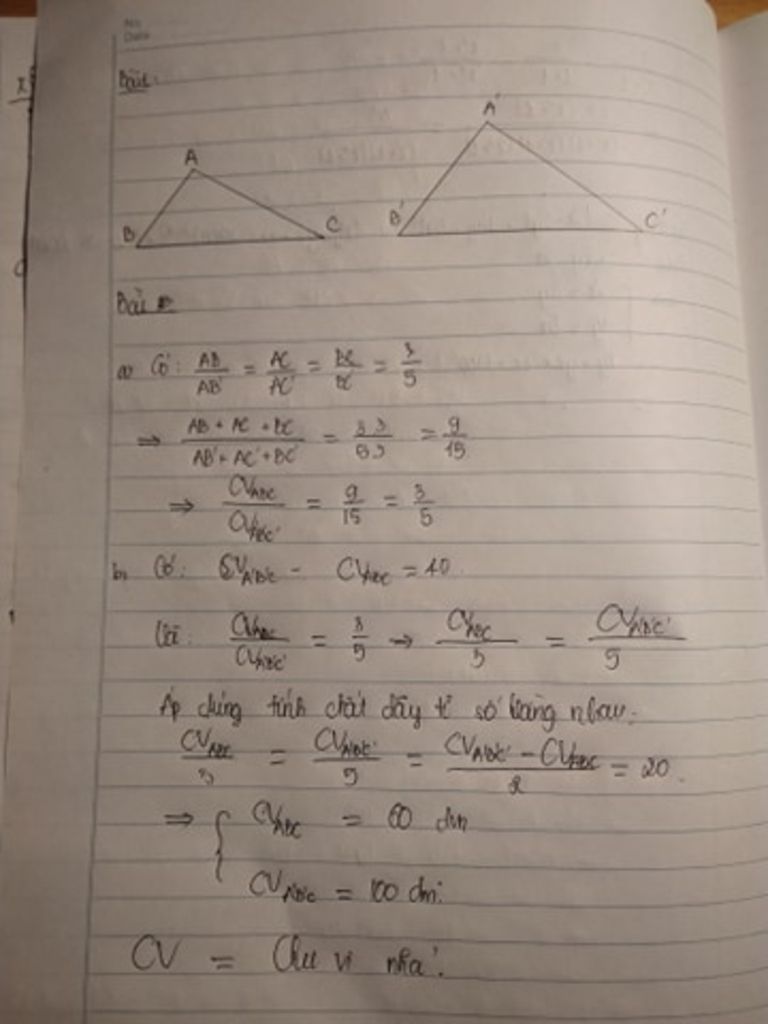 No.
Date
Bài:
A
B
C
A'
B'
C'
Bài
a, Có: AB/A'B' = AC/A'C' = BC/B'C' = 3/5
⇒ (AB + AC + BC)/(A'B' + A'C' + B'C') = = 9/15
⇒ CV_ABC/CV_A'B'C' = 9/15 = 3/5
b, Có: CV_A'B'C' - CV_ABC = 40
CV_ABC/CV_A'B'C' = 3/5 → CV_ABC/3 = CV_A'B'C'/5
Áp dụng tính chất dãy tỉ số bằng nhau:
CV_ABC/3 = CV_A'B'C'/5 = (CV_A'B'C' - CV_ABC)/2 = 20.
⇒ { CV_ABC = 60 dm
CV_A'B'C' = 100 dm.
CV = Chu vi nha'.